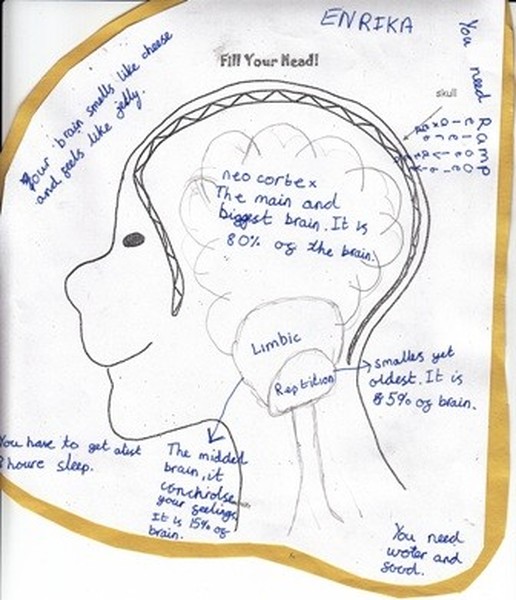 ENRIKA
Fill Your Head!
Your brain smells like cheese
and feels like jelly.
You need Ramp
skull
neo corbex
The main and
biggest brain. It is
80% og the brain.
Limbic
Reptition
smalles yet
oldest. It is
5% og brain.
You have to get alest
8 houre sleep.
The middel
brain, it
your feelings
It is 15% og
brain.
You need
woter and
good.